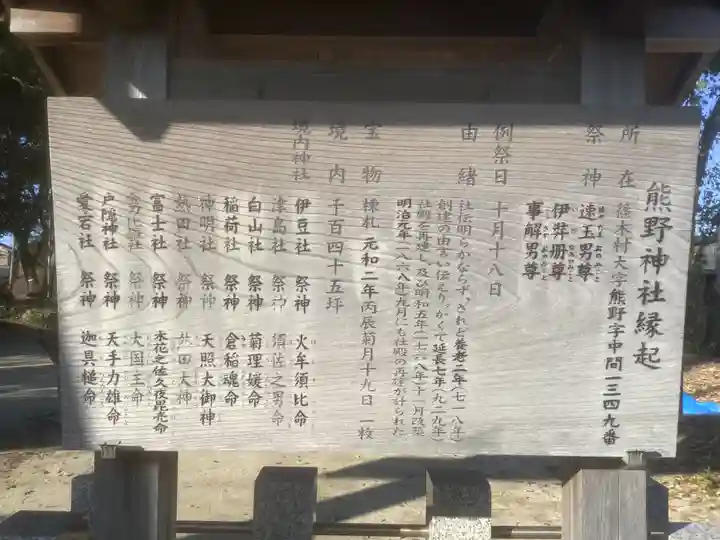 熊野神社縁起
所在 篠木村大字熊野字中間一三四九番
祭神 速玉男尊
伊弉册尊
事解男尊
例祭日 十月十八日
由緒 社伝明らかならず、されど養老二年(七一八年)
創建の由言い伝えり、かくて延長七年(九二九年)
社殿を再建し、及び明和五年(一七六八年)十一月改築
明治元年(一八六八年)九月にも社殿の再建が計られた
宝物 棟札 元和二年丙辰菊月十九日 一枚
境内 千百四十五坪
境内神社 伊豆社 祭神 火牟須比命
津島社 祭神 須佐之男命
白山社 祭神 菊理媛命
稲荷社 祭神 倉稲魂命
神明社 祭神 天照大御神
熱田社 祭神 熱田大神
富士社 祭神 木花之佐久夜毘売命
社 祭神 大国主命
戸隠神社 祭神 天手力雄命
愛宕社 祭神 迦具槌命